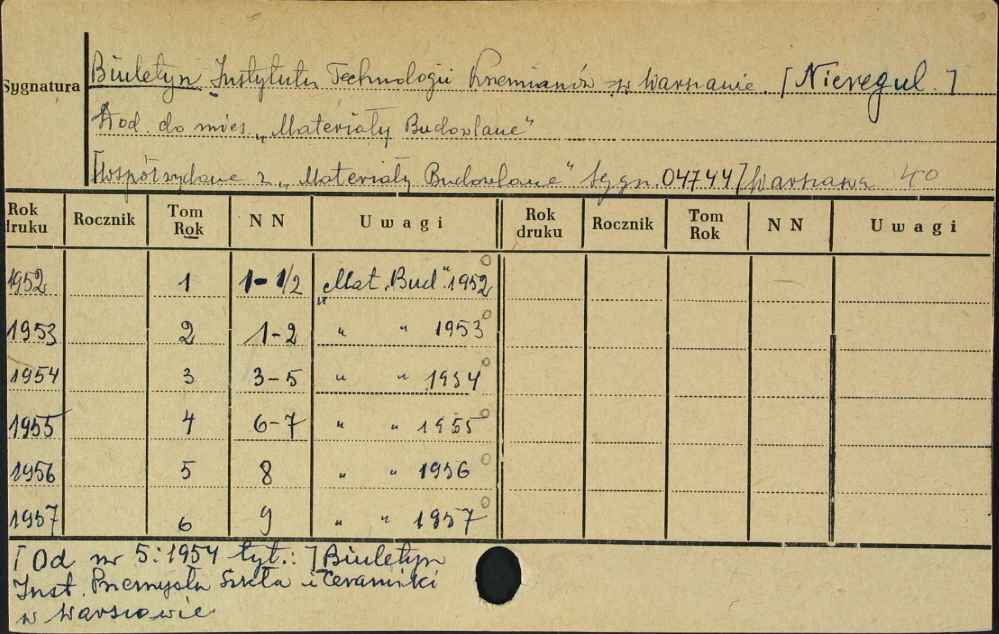 Sygnatura
Biuletyn Instytutu Technologii Krzemianów w Warszawie. [Nieregul.]
Dod. do mies. „Materiały Budowlane"
[Współwydane z „Materiały Budowlane" Sygn. 04744] Warszawa 40
Rok druku Rocznik Tom Rok N N Uwagi Rok druku Rocznik Tom Rok N N Uwagi
1952 1 1-1/2 „Mat. Bud." 1952
1953 2 1-2 " " 1953
1954 3 3-5 " " 1954
1955 4 6-7 " " 1955
1956 5 8 " " 1956
1957 6 9 " " 1957
[Od nr 5:1954 tyt.:] Biuletyn
Inst. Przemysłu Szkła i Ceramiki
w Warszawie